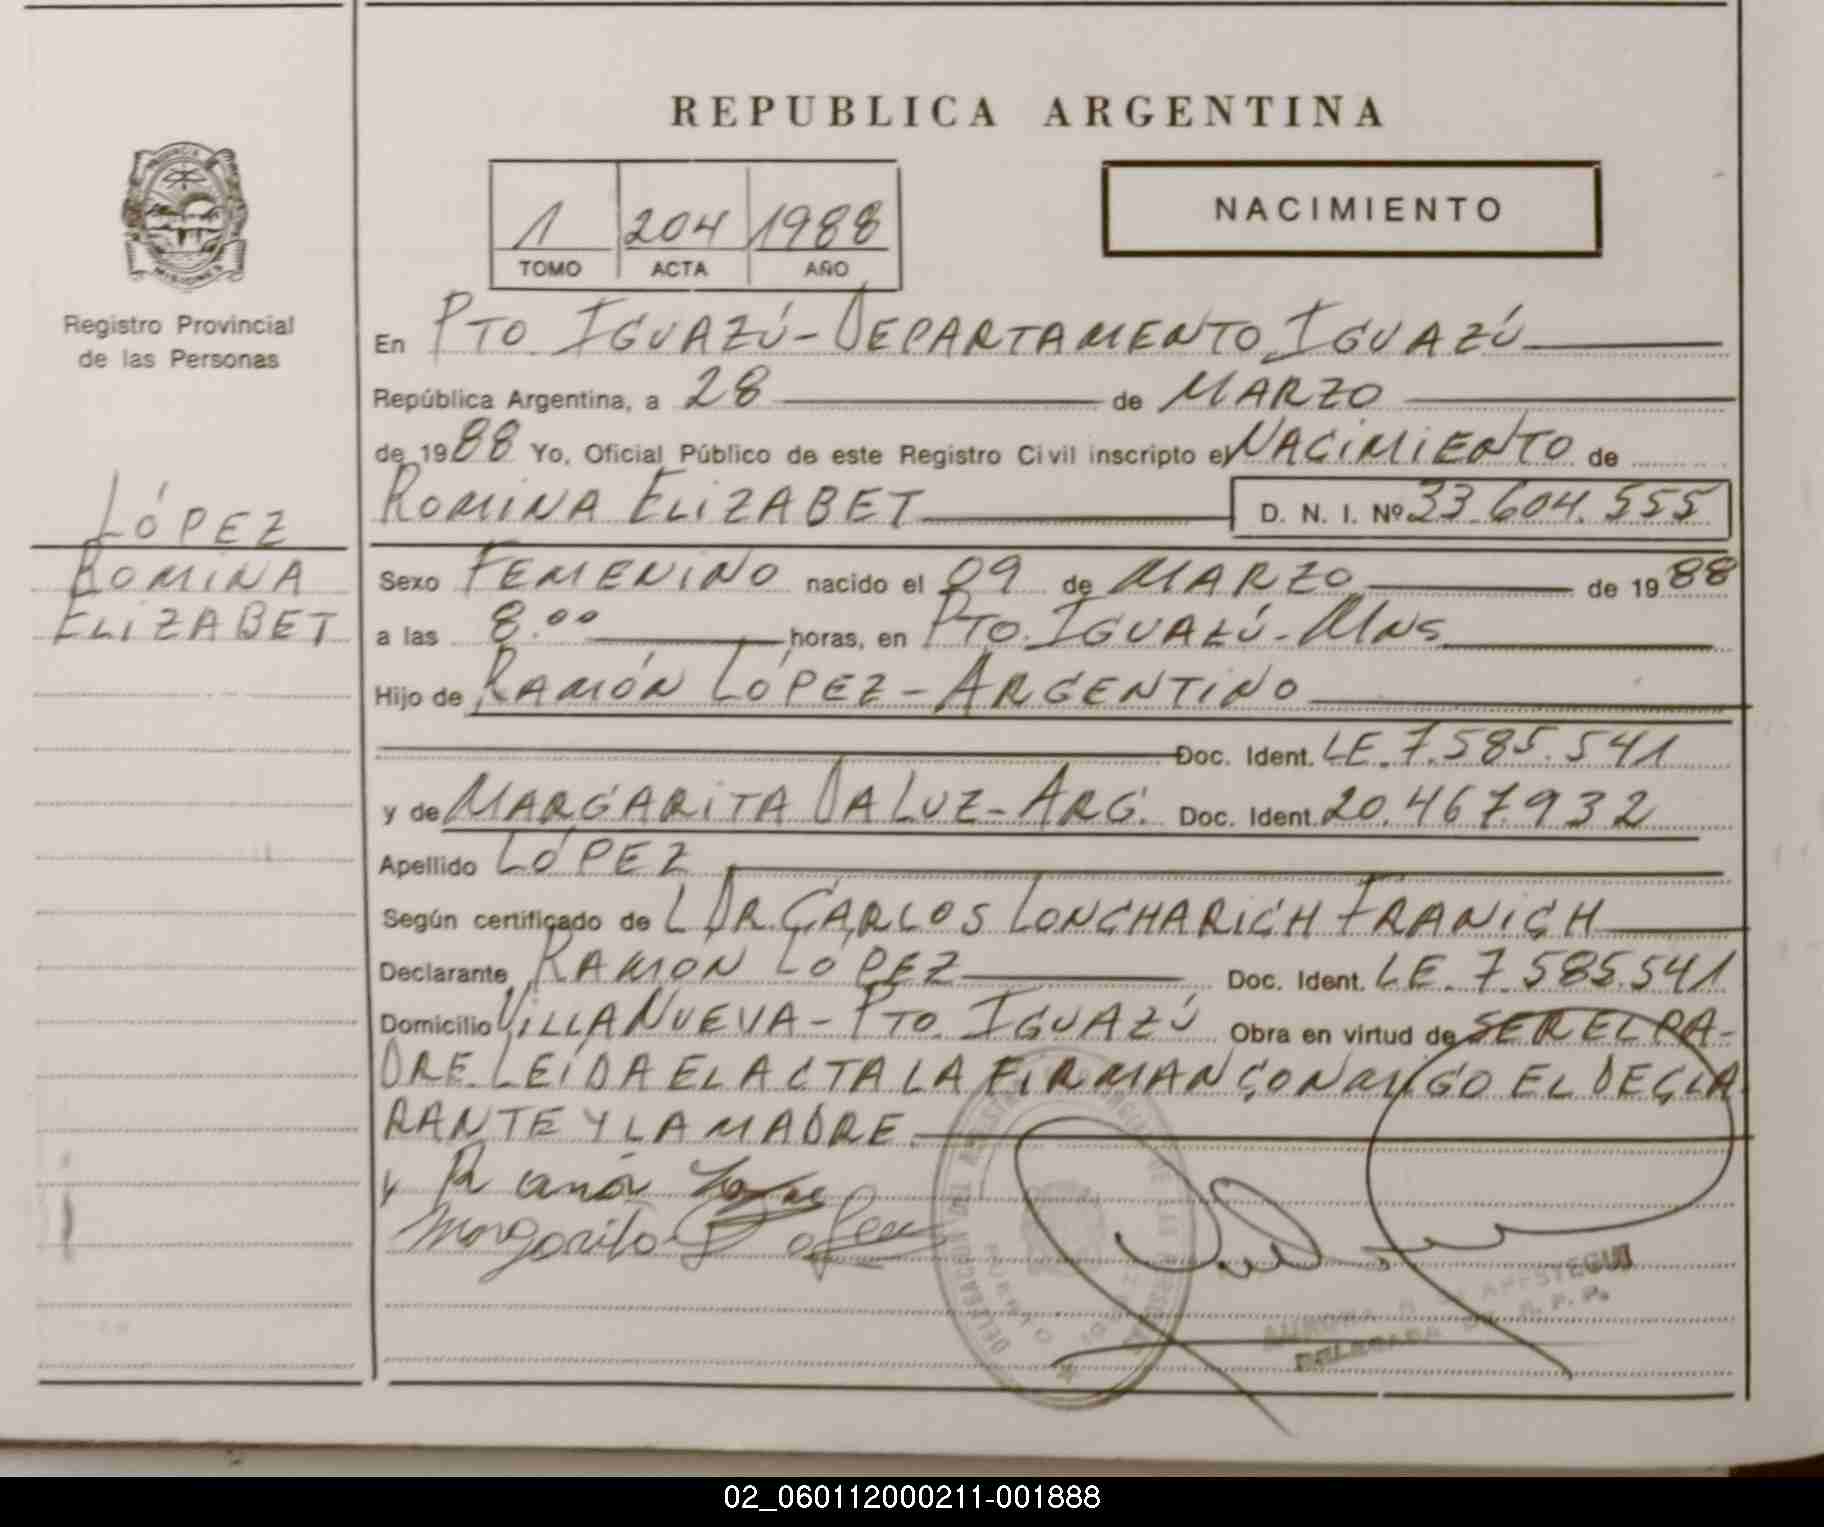 REPUBLICA ARGENTINA
PROVINCIA DE
MISIONES
Registro Provincial
de las Personas
1 204 1988
TOMO ACTA AÑO
NACIMIENTO
LÓPEZ
ROMINA
ELIZABET
En PTO IGUAZÚ-DEPARTAMENTO IGUAZÚ
República Argentina, a 28 de MARZO
de 1988 Yo, Oficial Público de este Registro Civil inscripto el NACIMIENTO de
ROMINA ELIZABET D. N. I. Nº 33.604.555
Sexo FEMENINO nacido el 09 de MARZO de 1988
a las 8.00 horas, en PTO. IGUAZÚ-MNS
Hijo de RAMÓN LÓPEZ-ARGENTINO
Doc. Ident. LE.7.585.541
y de MARGARITA DA LUZ-ARG. Doc. Ident. 20.467.932
Apellido LÓPEZ
Según certificado de L DR. CARLOS LONCHARICH FRANICH
Declarante RAMON LÓPEZ Doc. Ident. LE.7.585.541
Domicilio VILLA NUEVA-PTO IGUAZÚ Obra en virtud de SER EL PA-
DRE. LEÍDA EL ACTA LA FIRMAN CONMIGO EL DECLA
RANTE Y LA MADRE.
Ramón
Margarita
DELEGACION DEL REGISTRO
DELEGADA R. P. P.
02_060112000211-001888